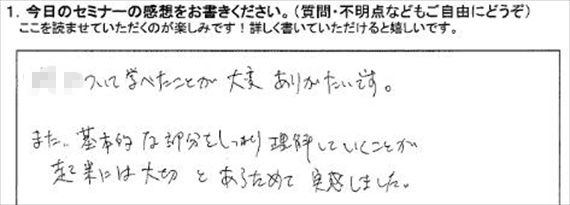 1. 今日のセミナーの感想をお書きください。(質問・不明点などもご自由にどうぞ)
ここを読ませていただくのが楽しみです!詳しく書いていただけると嬉しいです。
ついて学べたことが 大変 ありがたいです。
また、基本的な部分をしっかり理解していくことが
起業には大切 と あらためて 実感しました。